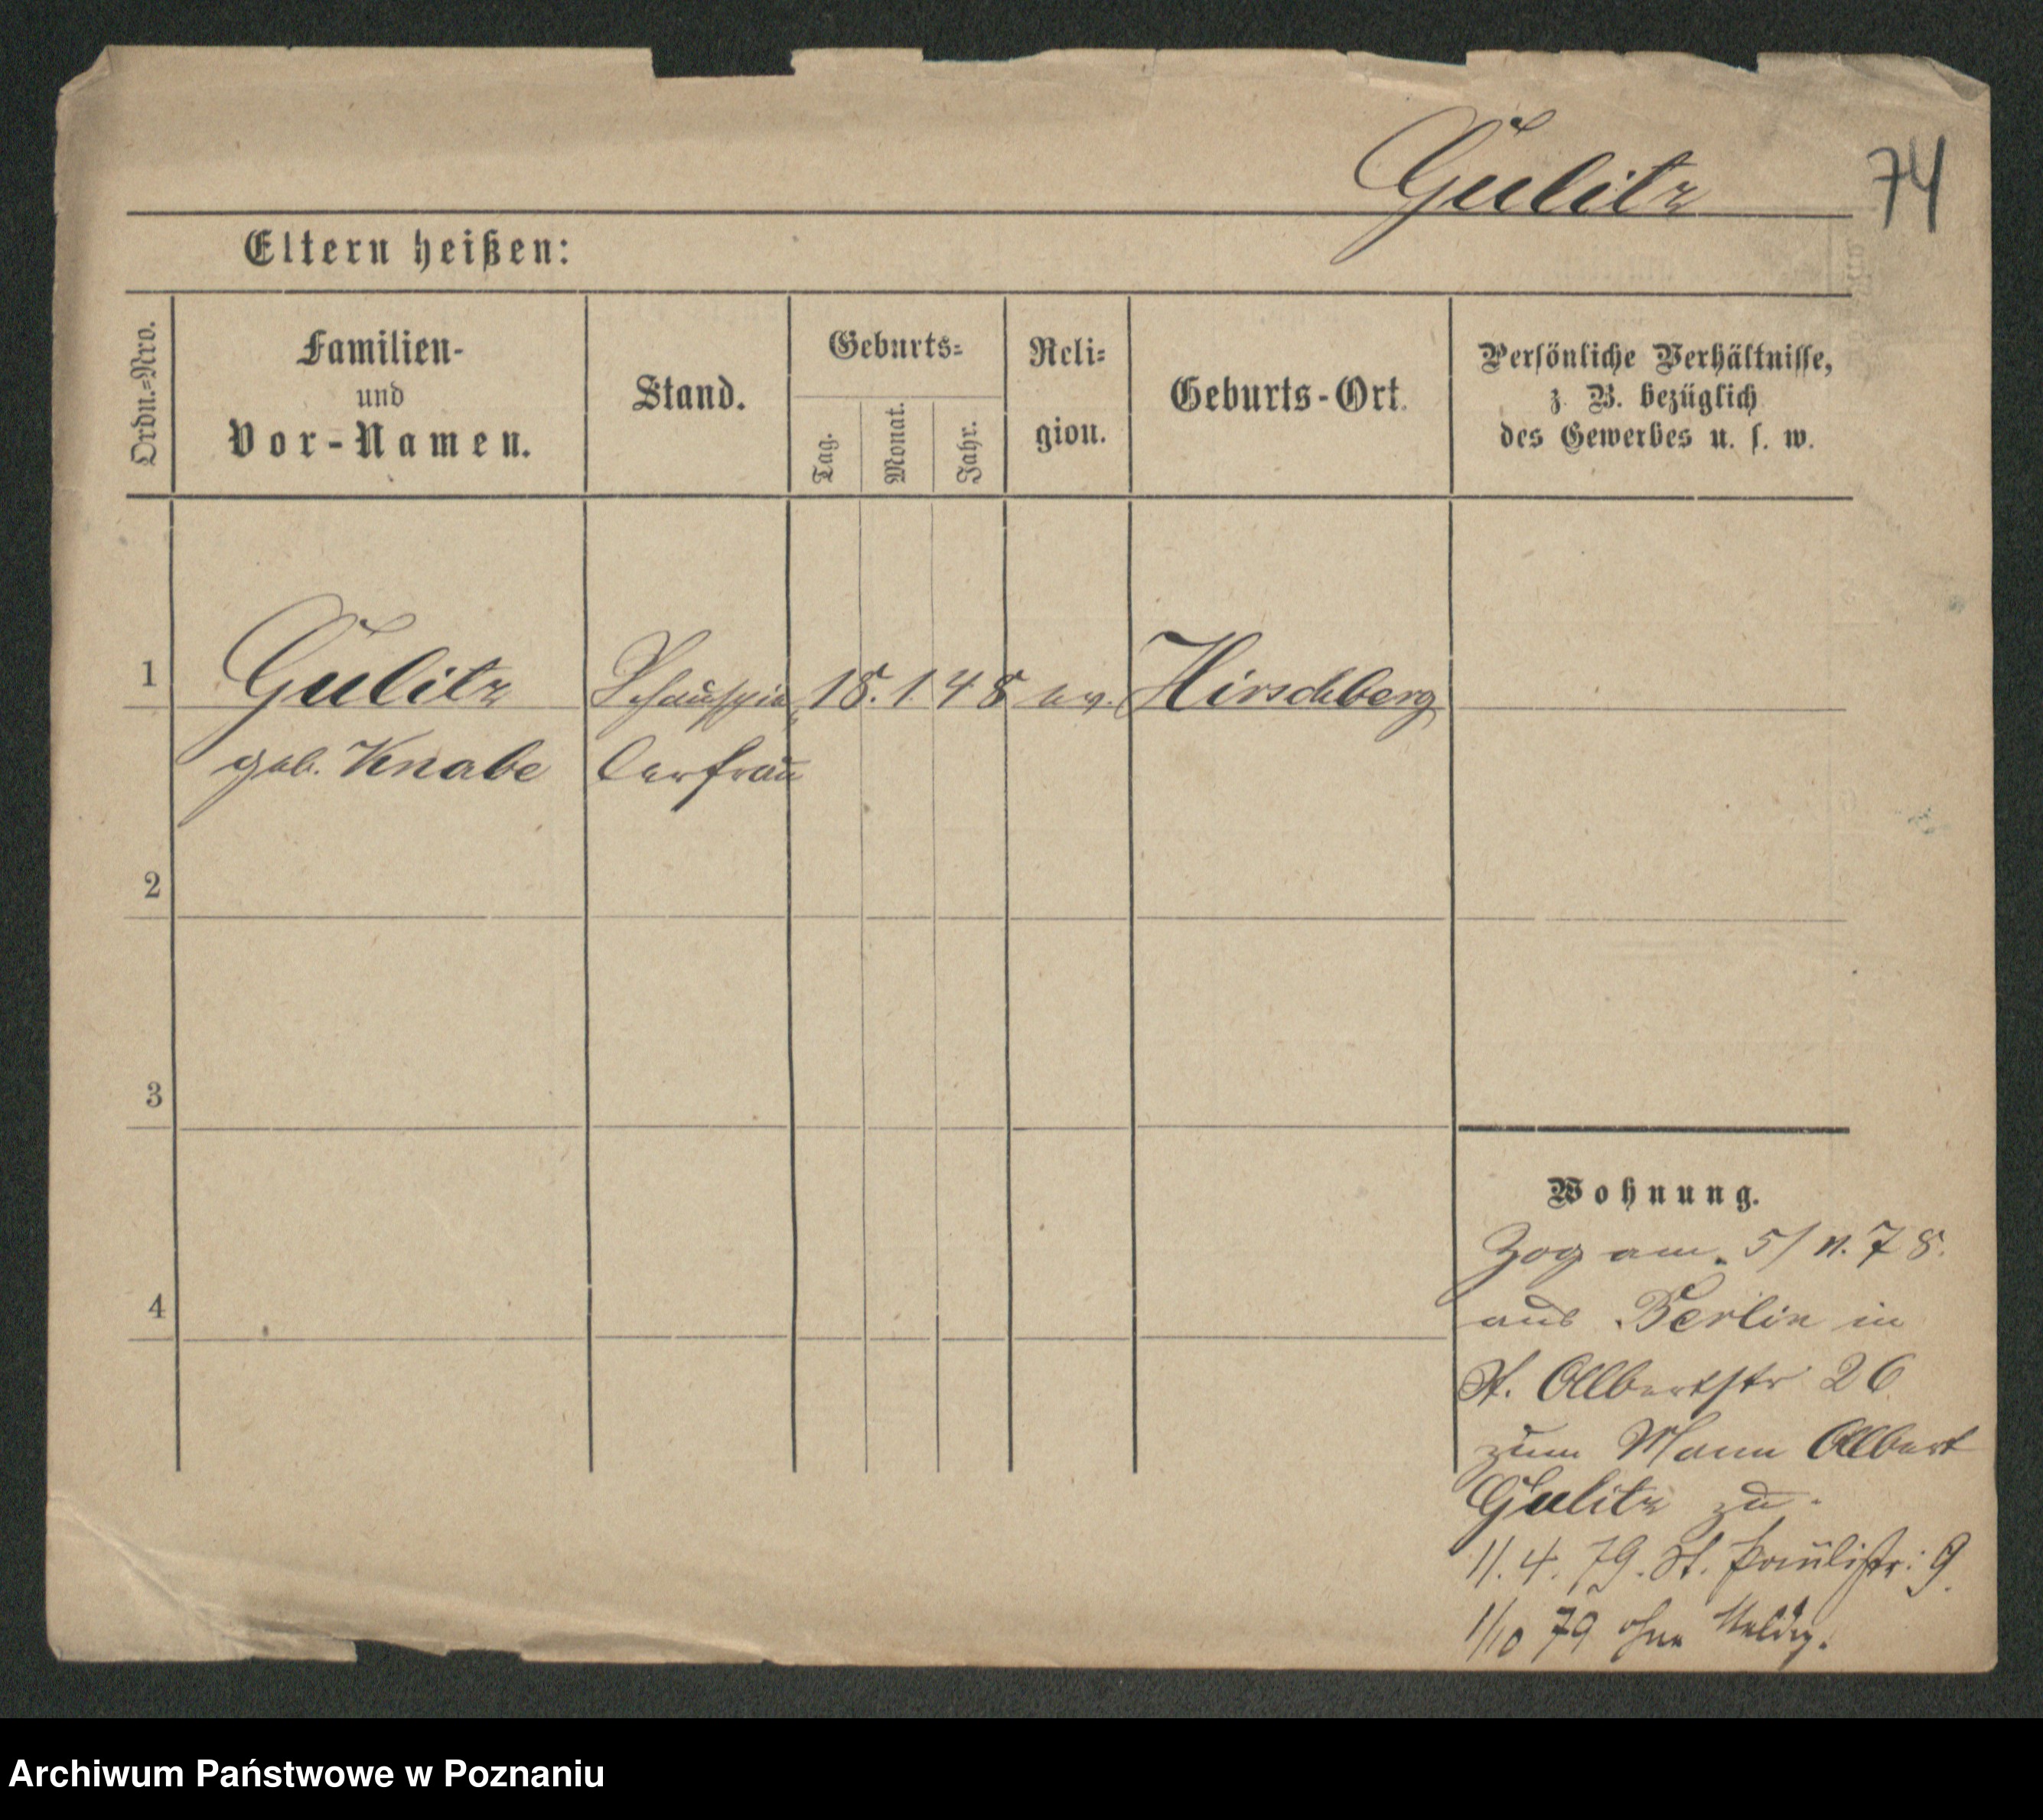 Gulitz 74
Eltern heißen:
Ordn.=Nro.
Familien-
und
Vor-Namen.
Stand.
Geburts=
Tag.
Monat.
Jahr.
Reli=
gion.
Geburts-Ort.
Persönliche Verhältnisse,
z. B. bezüglich
des Gewerbes u. s. w.
1 Gulitz Schauspie 18. 1. 48 ev. Hirschberg
geb. Knabe lerfrau
2
3
4
Wohnung.
Zog am 5/11.78.
aus Berlin in
St. Adalbertstr 26
zum Mann Albert
Gulitz zu.
11. 4. 79. St. Paulistr: 9.
1/10 79 ohne Meldg.
Archiwum Państwowe w Poznaniu